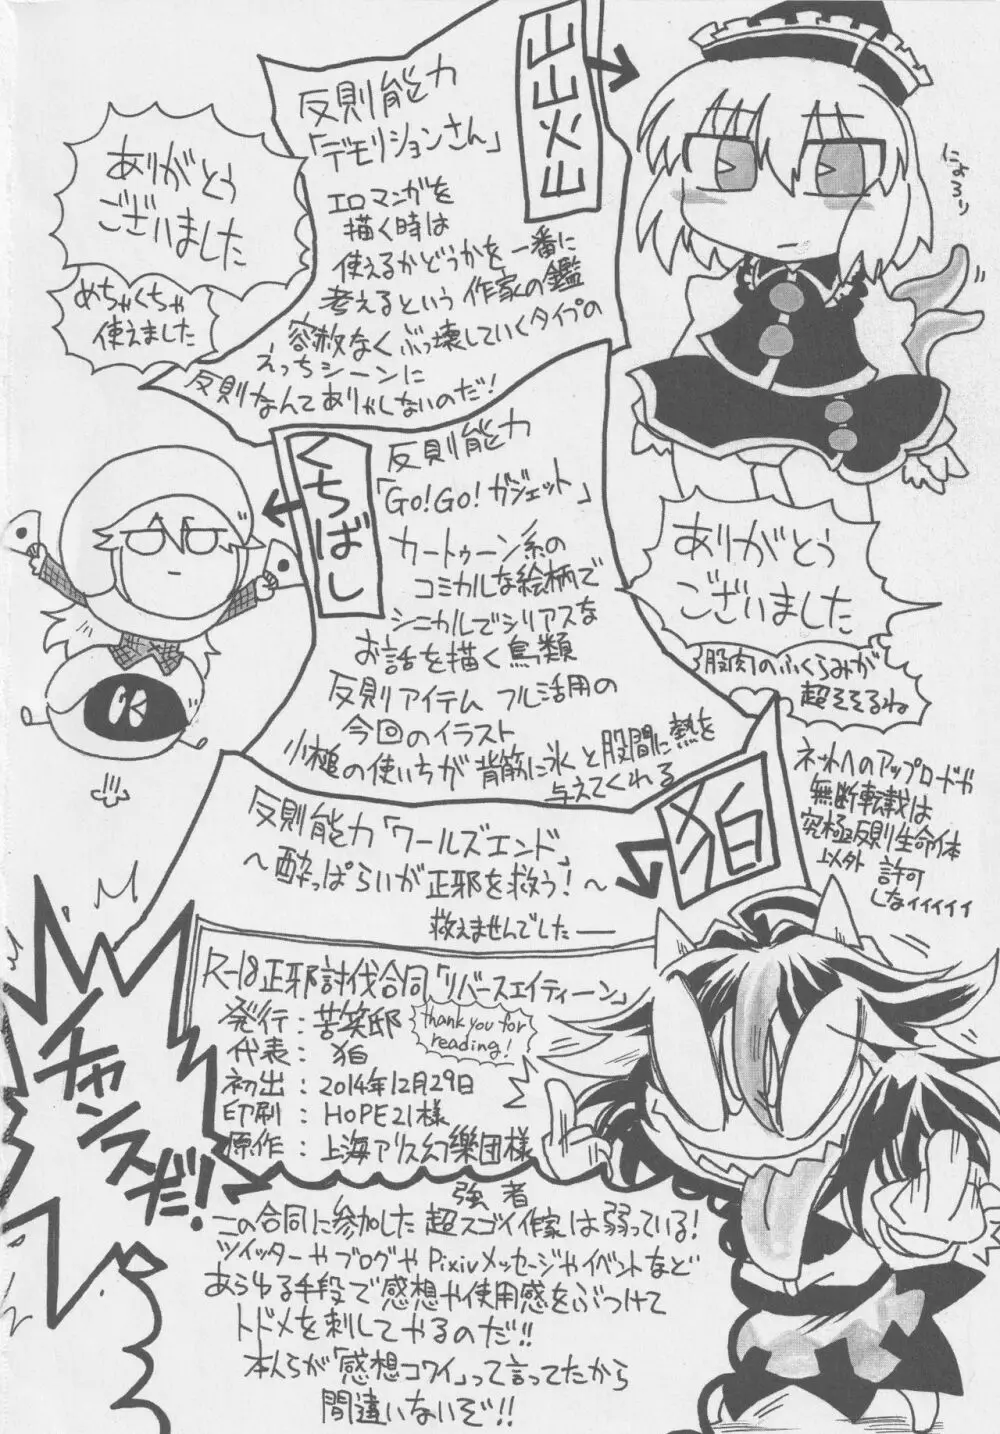 山山火山
反則能力
「デモリションさん」
エロマンガを
描く時は
使えるかどうかを一番に
考えるという作家の鑑
容赦なくぶっ壊していくタイプの
えっちシーンに
反則なんてありゃしないのだ!
ありがとう
ございました
めちゃくちゃ
使えました
にょろり
くちばし
反則能力
「GO!GO!ガジェット」
カートゥーン系の
コミカルな絵柄で
シニカルでシリアスな
お話を描く鳥類
反則アイテムフル活用の
今回のイラスト
小槌の使いちが背筋に氷と股間に熱を
与えてくれる
ありがとう
ございました
股肉のふくらみが
超そそるね
狛
反則能力「ワールズエンド」
～酔っぱらいが正邪を救う!～
救えませんでした――
ネットへのアップロードや
無断転載は
究極反則生命体
以外 許可
しなィィィィィ
R-18正邪討伐合同「リバースエイティーン」
発行:苦笑邸
代表:狛
初出:2014年12月29日
印刷:HOPE21様
原作:上海アリス幻樂団様
thank you for
reading!
チャンスだ!
強者
この合同に参加した超スゴイ作家は弱っている!
ツイッターやブログやPixivメッセージやイベントなど
あらゆる手段で感想や使用感をぶつけて
トドメを刺してやるのだ!!
本人らが「感想コワイ」って言ってたから
間違いないぞ!!